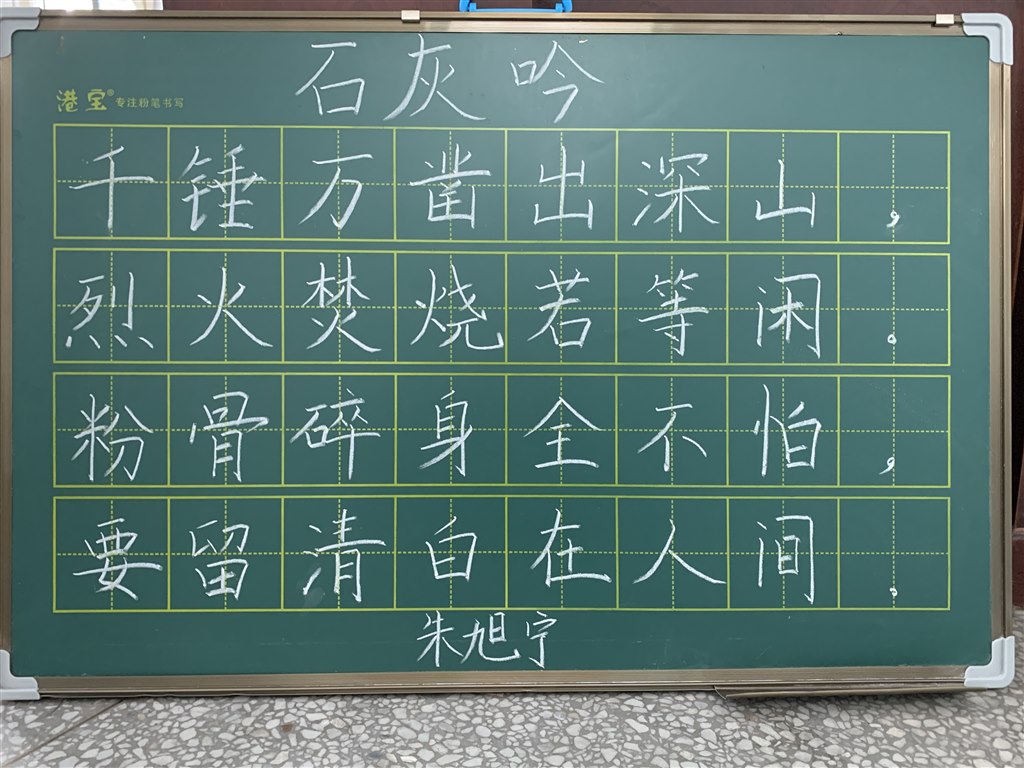 石灰吟
港宝® 专注粉笔书写
千锤万凿出深山，
烈火焚烧若等闲。
粉骨碎身全不怕，
要留清白在人间.
朱旭宁